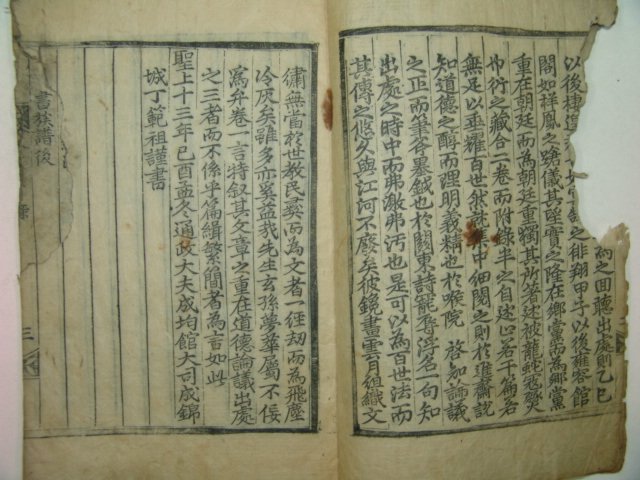 以後捿遲
之徘翔甲子以後雍容館
閣如祥鳳之蹌儀其望實之隆在鄕黨而爲鄕黨
重在朝廷而爲朝廷重獨其所著述被龍蛇寇燹
而附錄半之自述止若干篇若
無足以垂耀百世然試集中細閱之則於進齋說
知道德之醇而理明義精也於喉院 啓知論議
之正而筆斧墨鉞也於關東詩寵辱浮名一句知
出處之時中而弗激弗汚也是可以爲百世法而
其傳之悠久與江河不廢矣彼鏡畫雲月組織文
繡無當於世敎民彛而爲文者一經刧而爲飛塵
冷灰矣雖多亦奚益哉先生玄孫夢蕐屬不佞
爲弁卷一言特叙其文章之重在道德論議出處
之三者而不係乎篇緝繁簡者爲言如此
聖上十三年己酉孟冬通政大夫成均館大司成錦
城丁範祖謹書
書族譜後
三